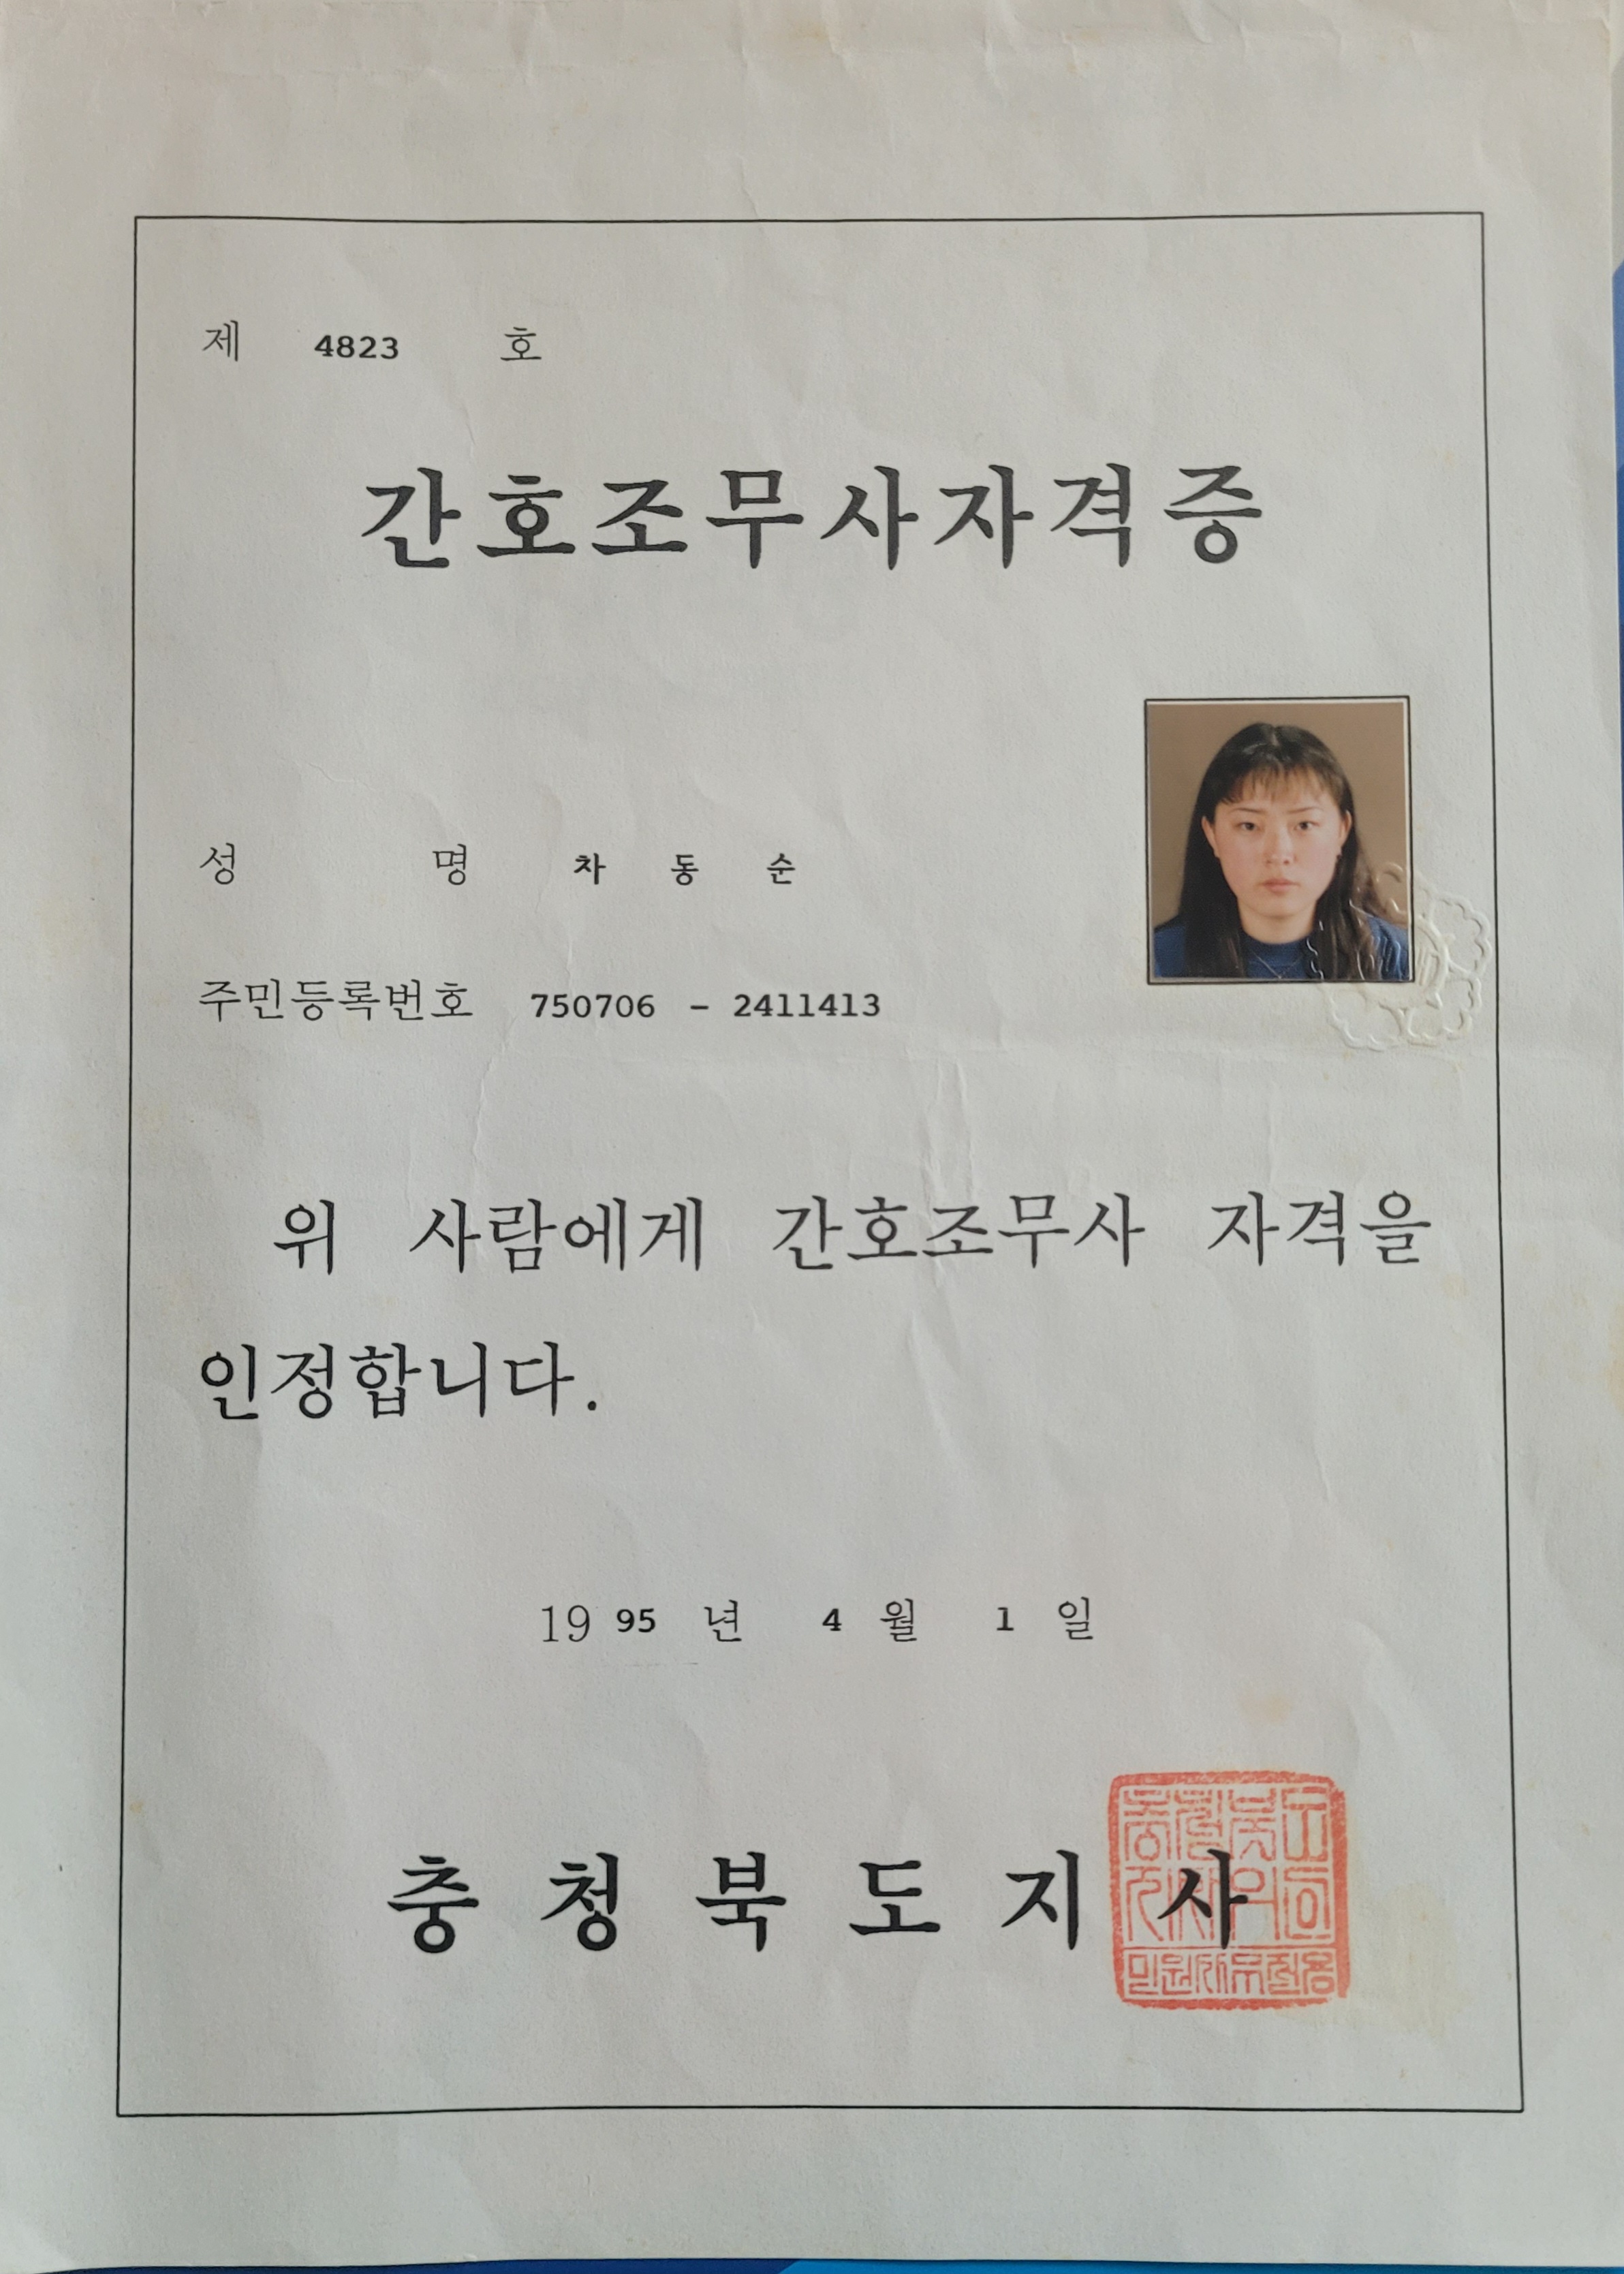 제 4823 호
간호조무사자격증
성 명 차 동 순
주민등록번호 750706 - 2411413
위 사람에게 간호조무사 자격을
인정합니다.
19 95 년 4 월 1 일
충 청 북 도 지 사